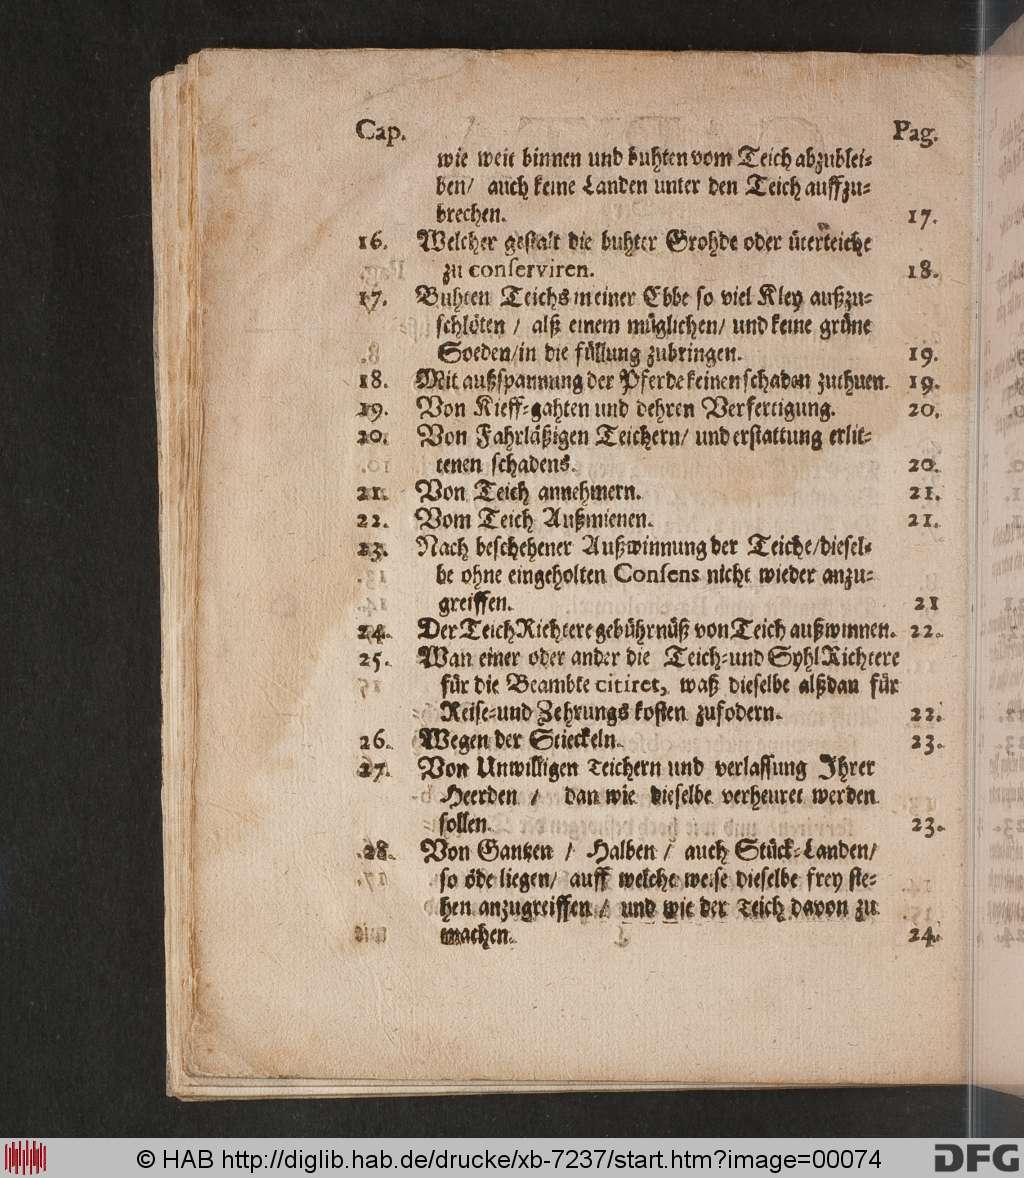 Cap. Pag.
wie weit binnen und buhten vom Teich abzublei-
ben/ auch keine Landen unter den Teich auffzu-
brechen. 17.
16. Welcher gestalt die buhter Grohde oder üterteiche
zu conserviren. 18.
17. Buhten Teichs in einer Ebbe so viel Kley außzu-
schlöten / alß einem müglichen/ und keine grüne
Soeden/in die füllung zubringen. 19.
18. Mit außspannung der Pferde keinen schaden zuthuen. 19.
19. Von Kieff-gahten und dehren Verfertigung. 20.
20. Von Fahrläßigen Teichern/ und erstattung erlit-
tenen schadens. 20.
21. Von Teich annehmern. 21.
22. Vom Teich Außmienen. 21.
23. Nach beschehener Außwinnung der Teiche/diesel-
be ohne eingeholten Consens nicht wieder anzu-
greiffen. 21
24. Der Teich Richtere gebührnüß von Teich außwinnen. 22.
25. Wan einer oder ander die Teich-und Syhl Richtere
für die Beambte citiret, waß dieselbe alßdan für
Reise-und Zehrungs kosten zufodern. 22.
26. Wegen der Stieckeln. 23.
27. Von Unwilligen Teichern und verlassung Ihrer
Heerden / dan wie dieselbe verheuret werden
sollen. 23.
28. Von Gantzen / Halben / auch Stück-Landen/
so öde liegen/ auff welche weise dieselbe frey ste-
hen anzugreiffen / und wie der Teich davon zu
machen. 24.
© HAB http://diglib.hab.de/drucke/xb-7237/start.htm?image=00074
DFG